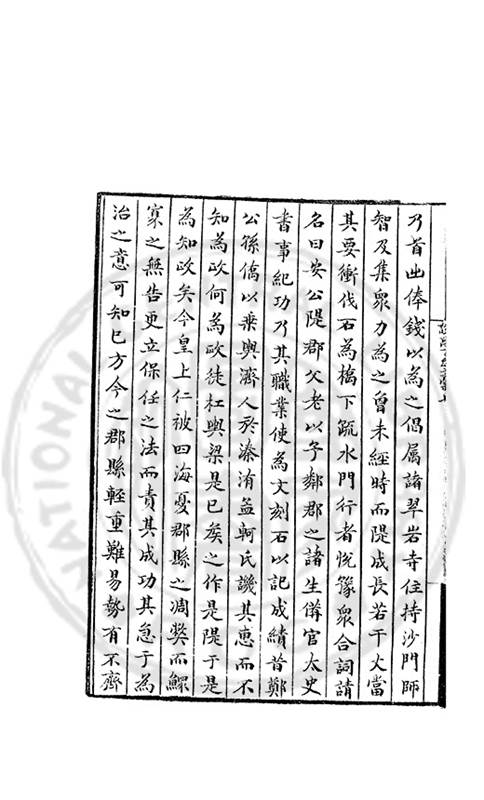 乃首出俸錢以為之倡属諸翠岩寺住持沙門師
智及集眾力為之曾未經時而隄成長若干丈當
其要衝伐石為橋下疏水門行者悅豫眾合詞請
名曰安公隄郡父老以予鄰郡之諸生備官太史
書事紀功乃其職業使為文刻石以記成績昔鄭
公孫僑以乗輿濟人於溱洧孟軻氏譏其恵而不
知為政何為政徒杠輿梁是已矦之作是隄于是
為知政矣今皇上仁被四海憂郡縣之凋獘而鰥
寡之無告更立保任之法而責其成功其急于為
治之意可知已方今之郡縣輕重難易勢有不齊